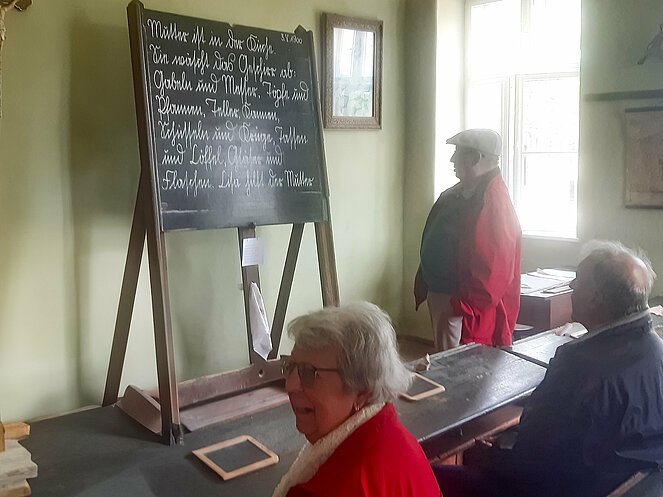 Mutter ist in der Küche. 3.V.1900
Sie wäscht das Geschirr ab:
Gabeln und Messer, Töpfe und
Pfannen, Teller, Kannen,
Schüsseln und Krüge, Tassen
und Löffel, Gläser und
Flaschen. Lisa hilft der Mutter